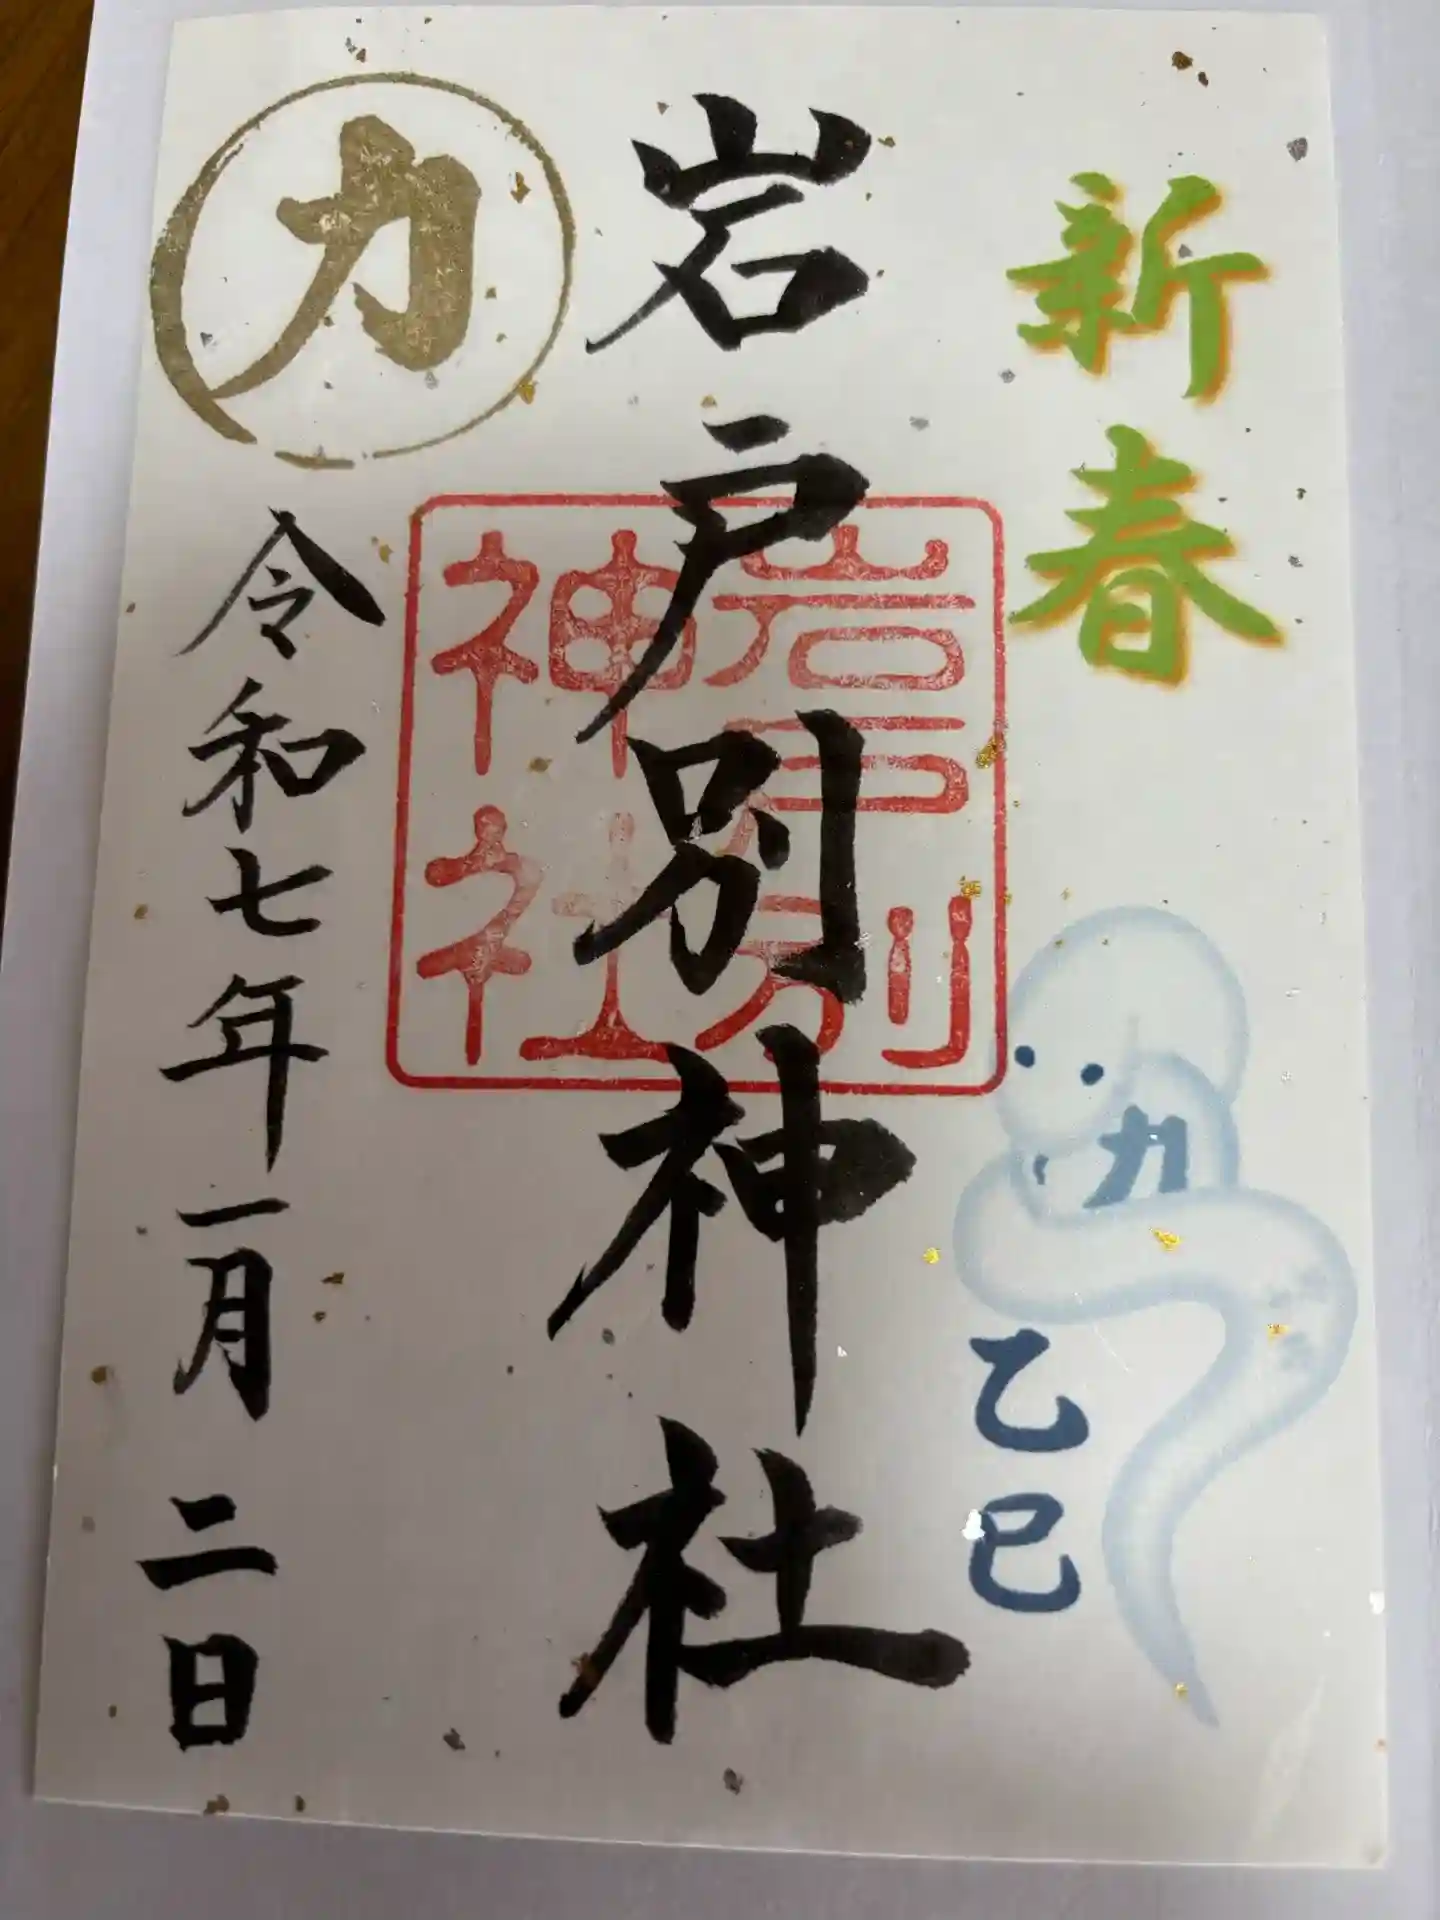 新春
力
乙巳
岩戸別神社
岩戸別
神社
力
令和七年一月二日